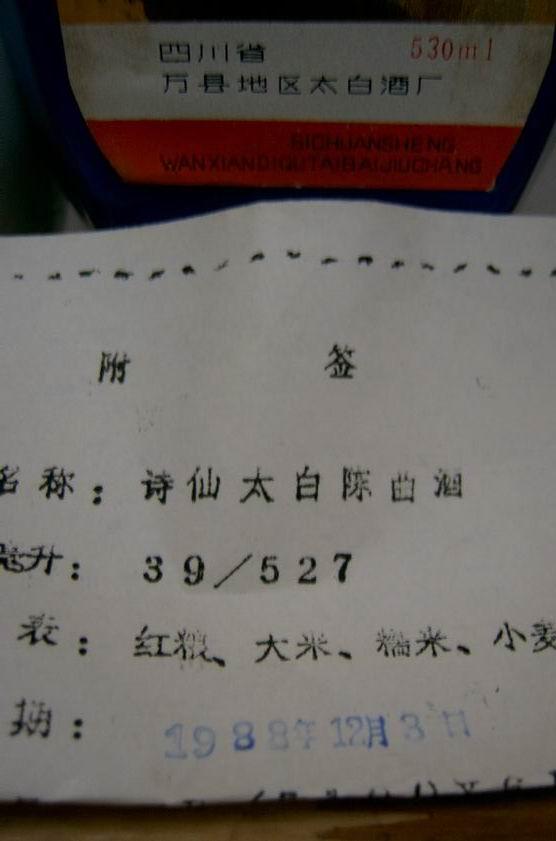 四川省 530ml
万县地区太白酒厂
SICHUANSHENG
WANXIANDIQUTAIBAIJIUCHANG
附 签
名称：诗仙太白陈曲酒
升：39／527
表：红粮、大米、糯米、小麦
期：1988年12月3日